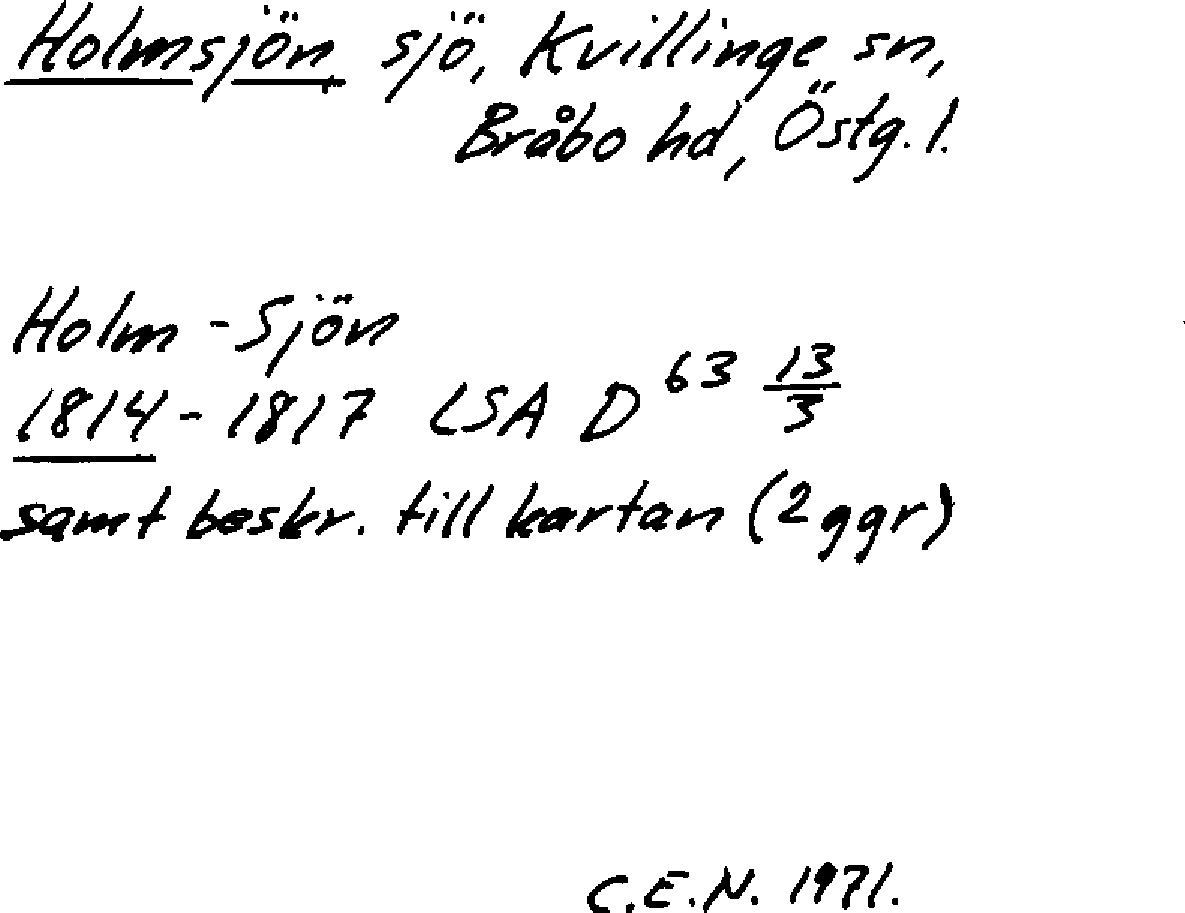 Holmsjön, sjö, Kvillinge sn,
Bråbo hd, Östg. l.
Holm-Sjön
1814-1817 LSA D 63 13/3
samt beskr. till kartan (2 ggr)
C.E.N. 1971.